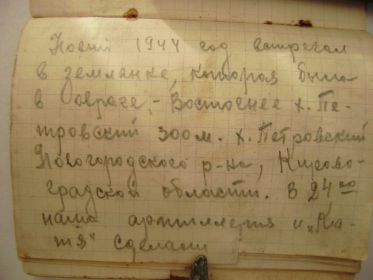 Новый 1944 год встречал
в землянке, которая была
в овраге, - Восточнее х. Пе-
тровский 300 м. х. Петровский
Новогородского р-на, Кирово-
градской области. В 24.00
наша артиллерия и „Ка-
тя" сделали